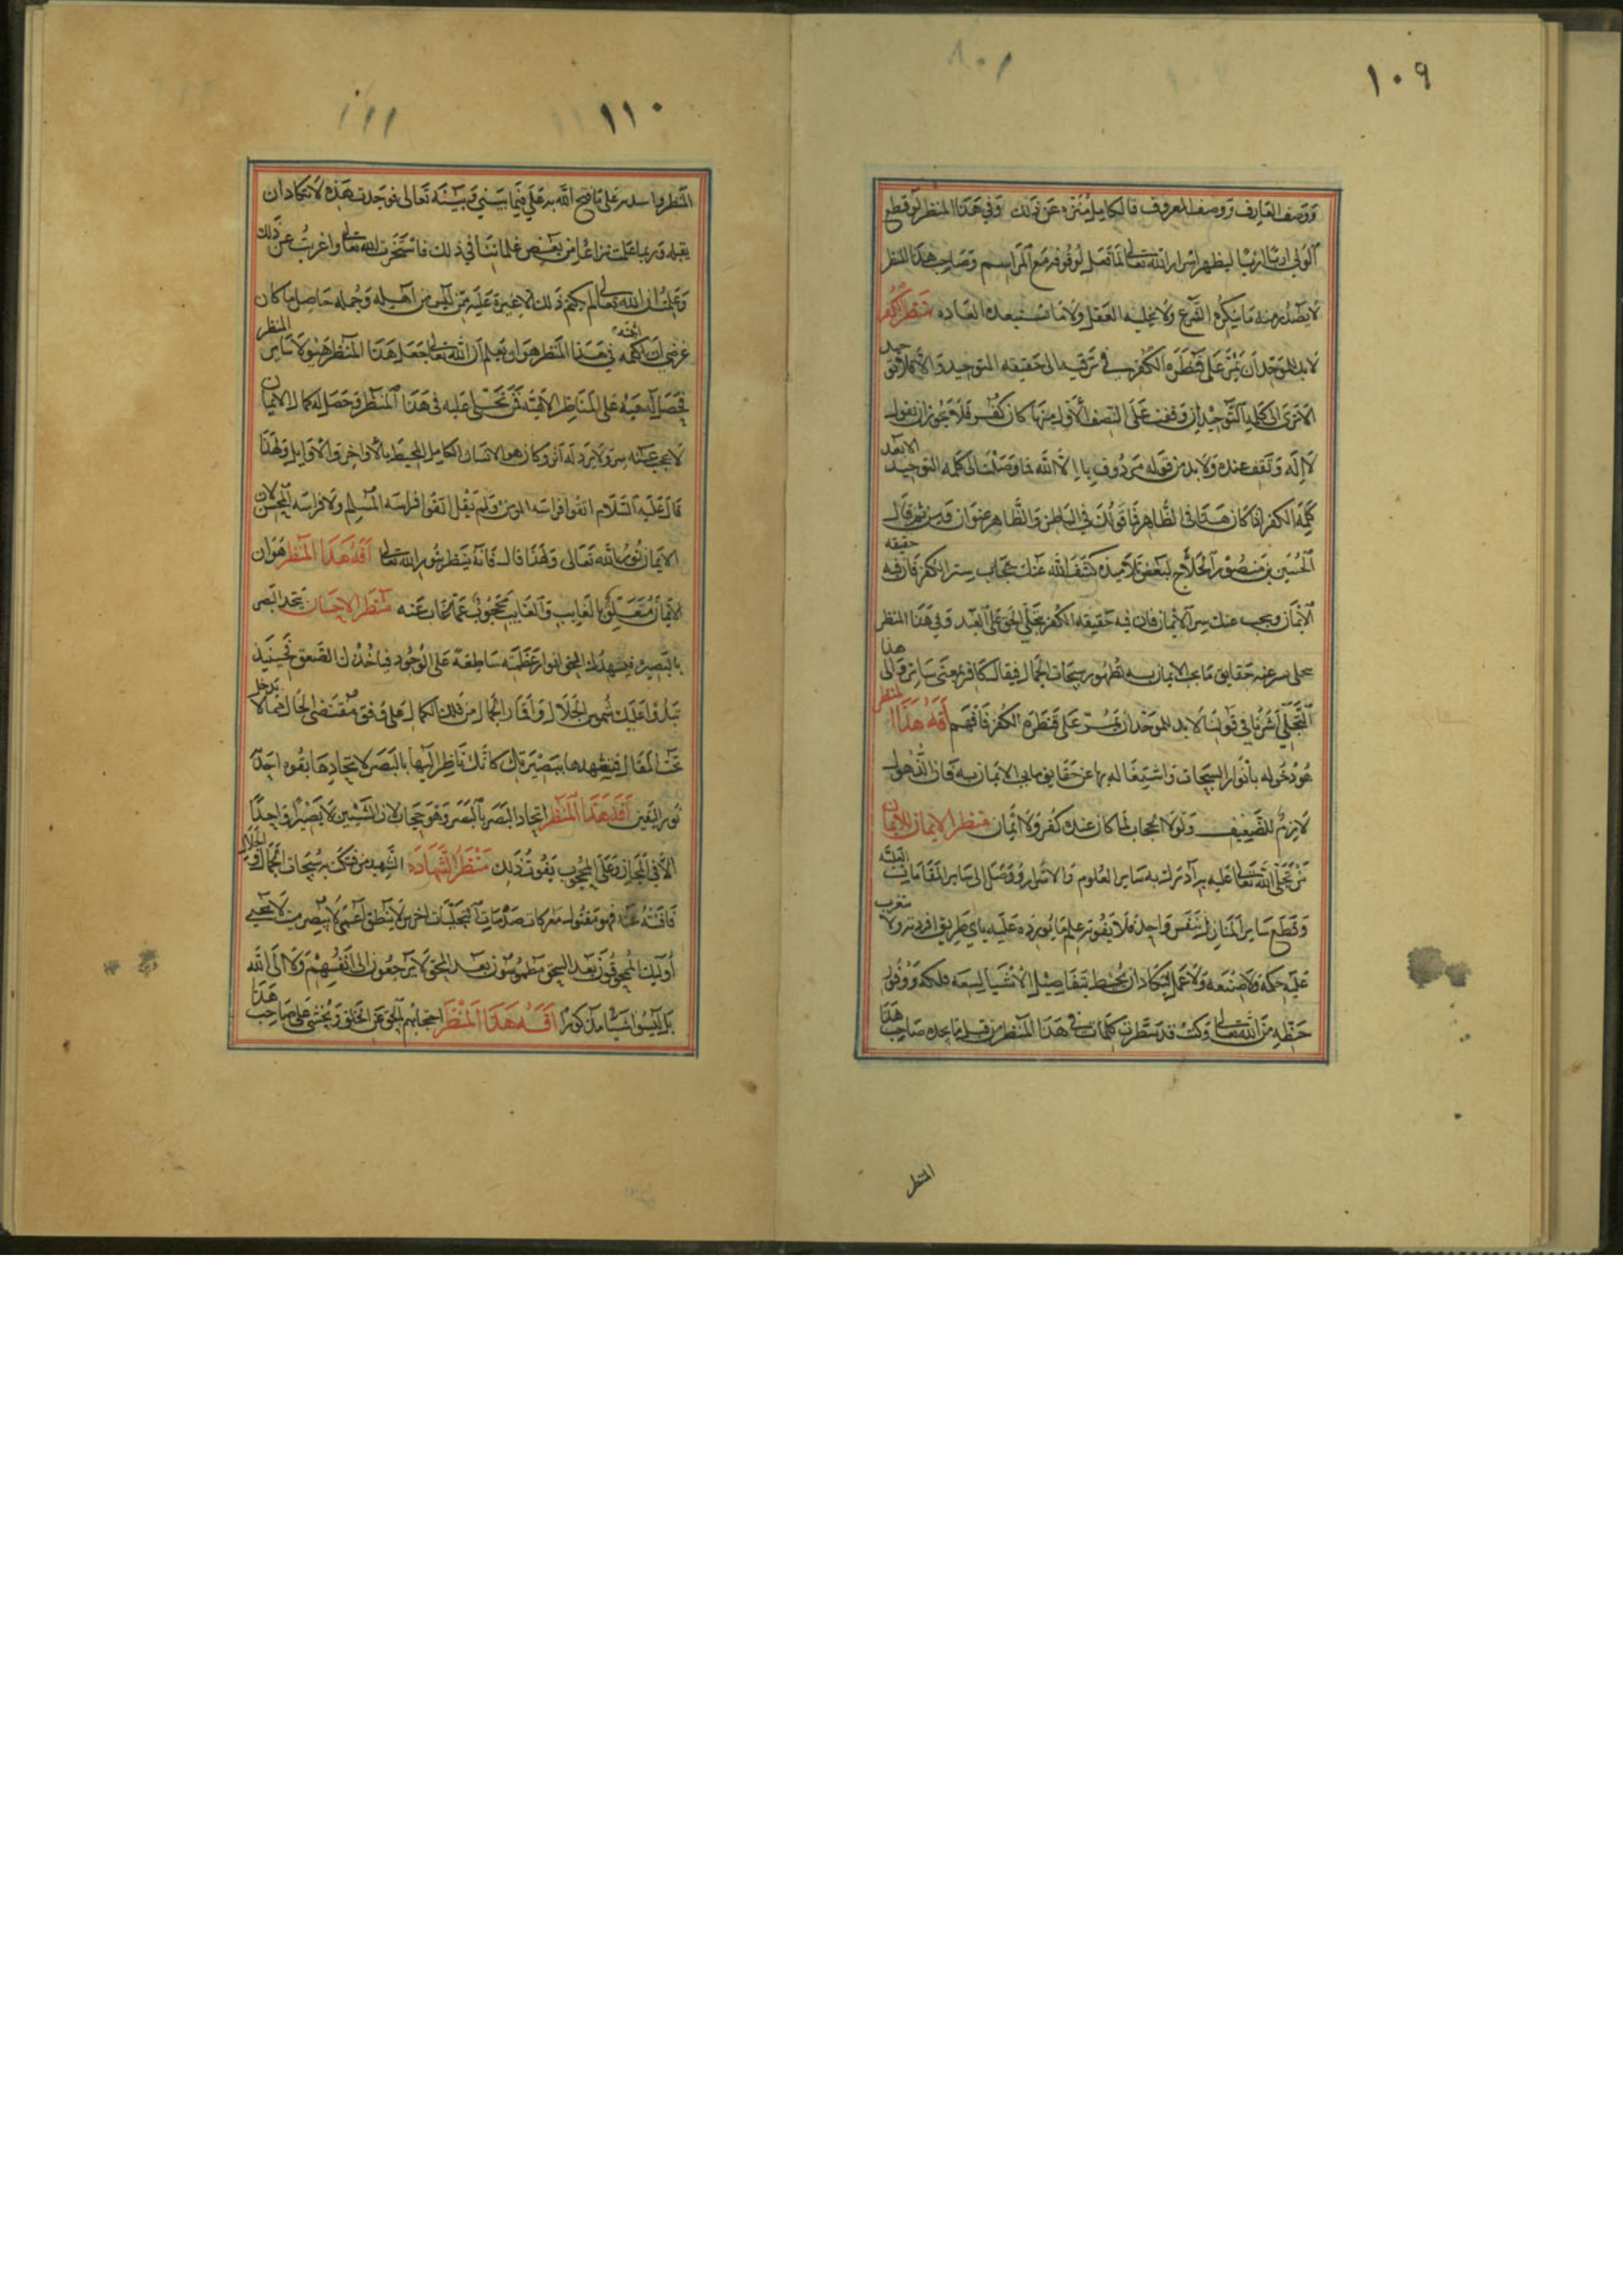 ١٠٩
ووصف العارف ووصف المعروف فالكامل منزه عن ذلك وفي هذا المنظر لو قطع
الولي اربا اربا ليظهر اسرار الله تعالى لما فعل لوقوفه مع المراسم وصاحب هذا المنظر
لا يصدر منه ما ينكره الشرع ولا يحيله العقل ولا ما تستبعده العادة منظر الكفر
لا بد للموحد ان يمر على قنطرة الكفر في ترقيه الى حقيقة التوحيد
الا ترى الى كلمة التوحيد ان وقفت على النصف الاول منها كان كفر فلا يجوز ان يقول
لا اله وتقف عنده ولا بد من قوله مردوف با الا الله فما وصلت الى كلمة التوحيد الا بعد
كلمة الكفر اذا كان هذا في الظاهر فاقولك في الباطن والظاهر عنوان قال
الحسين بن منصور الحلاج لبعض تلاميذه كشف الله عنك حجاب ستر الكفر فان فيه حقيقة
الايمان وحجب عنك سر الايمان فان فيه حقيقة الكفر تجلي الحق على العبد وفي هذا المنظر
حقايق ما يجب الايمان به لظهور سبحات الجمال فيقال كافر بمعنى ساتر والى هذا
التجلي اشرنا في قولنا لا بد للموحد ان يمر على قنطرة الكفر فافهم آفة هذا المنظر
هو دخوله بانوار السبحات واشتغاله بها عن حقايق ما يجب الايمان به فان الذهول
لازم للضعيف ولولا الحجاب لما كان عندك كفر ولا ايمان منظر الايمان للايمان
من تجلى الله تعالى عليه به ادرك به ساير العلوم والاسرار ووصل الى ساير المقامات العلية
وقطع ساير المنازل بنفس واحدة فلا يفوته علم ما يورده عليه باي طريق افرد به ولا
عليه حكمة ولا صنعة ولا عمل يكاد ان يحيط بتفاصيل الاشياء لسعة فلكه ووفور
حظه من الله تعالى وكنت قد سطرت كلمات في هذا المنظر من قبل ما يجده صاحب هذا
المنظر
١١٠
المنظر على ما فتح الله به علي فيما بيني وبينه تعالى فوجدت هذه لا تكاد ان
يقبله وربما علمت نزاعا من بعض علمائنا في ذلك فاستخرت الله تعالى واغربت عن ذلك
وعلمت ان الله تعالى لم يحكم ذلك الا غيرة عليه ممن ليس من اهله وجملة حاصل ما كان
غرضي ان في هذا المنظر هو ان تعلم ان الله تعالى جعل هذا المنظر لساير
المناظر الالهية فمن تجلى عليه في هذا المنظر وحصل له كمال الايمان
لا يحجب عنه سر ولا يرد له اثر وكان هو الانسان الكامل المحيط بالاواخر والاوايل ولهذا
قال عليه السلام اتقوا فراسة المومن ولم يقل اتقوا فراسة المسلم ولا فراسة المحسن لان
الايمان نور الله تعالى ولهذا قال فانه ينظر بنور الله تعالى آفة هذا المنظر هو ان
الايمان متعلق بالغايب والغايب محجوب عما غاب عنه منظر الاحسان يتحد البصر
بالبصيرة فيشهدك الحق انوار عظمته ساطعة على الوجود فياخذك الصعق فحينيذ
تبدوا عليك شموس الجلال واقمار الجمال من فلك الكمال على وفق مقتضى الحال مما لا يدخل
تحت المقال فتشهدها ببصيرتك كانك ناظر اليها بالبصر لاتحادها بقوة احد
نور اليقين آفة هذا المنظر اتحاد البصر بالبصر وهو حجاب لان الشيئين لا يصيرا واحدا
الا في المجاز وعلى المحجوب يفوت ذلك منظر الشهادة الشهيد من فتكت به سبحات الجمال والجلال
فافنته عنه فهو مقتول معركات صدمات التجليات اخرس لا ينطق اعمى لا يبصر ميت لا يحيى
اوليك الممحوقون بعد السحق مطموسون بعد المحق لا يرجعون الى انفسهم ولا الى الله
بل ليسوا شيئا مذكورا آفة هذا المنظر احتجابهم بالحق عن الخلق ويخشى على صاحب هذا